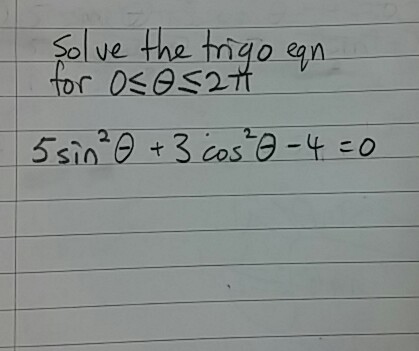 Solve the trigo eqn
for 0≤θ≤2π
5 sin²θ + 3 cos²θ - 4 = 0